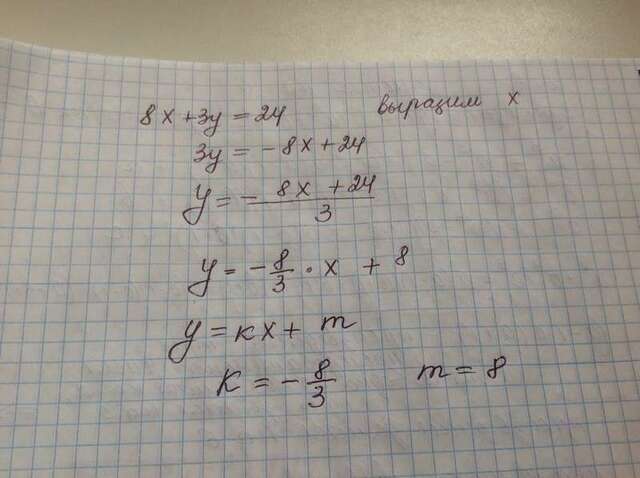 8x + 3y = 24 выразим x
3y = -8x + 24
y = - 8x + 24 / 3
y = - 8/3 · x + 8
y = кx + m
к = - 8/3 m = 8